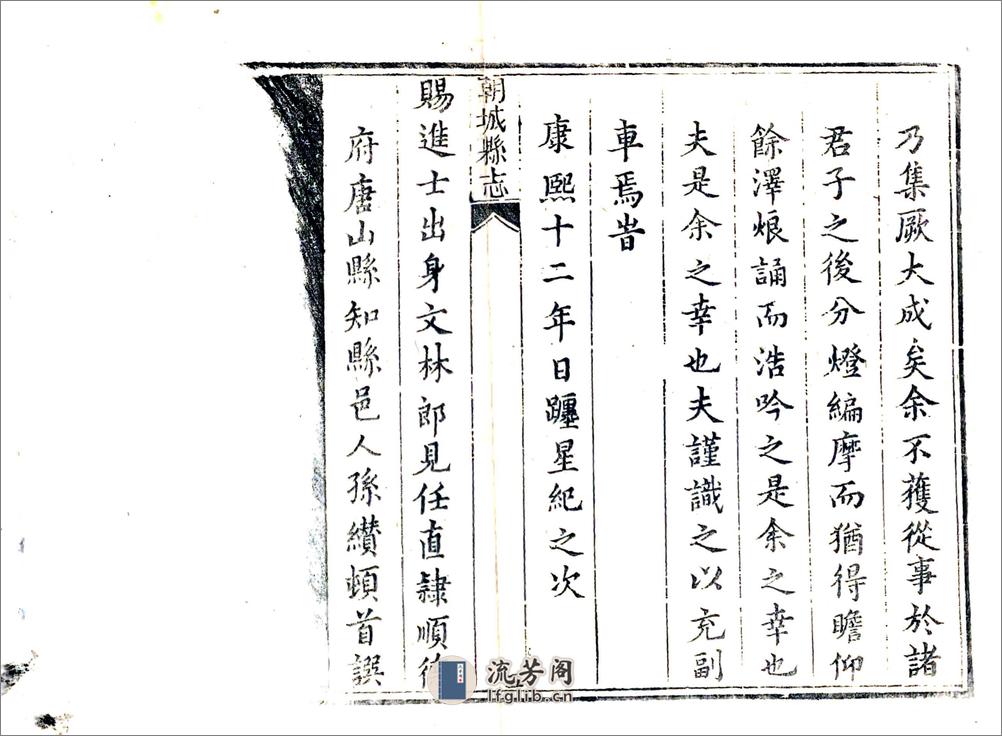 乃集厥大成矣余不獲從事於諸
君子之後分燈編摩而猶得瞻仰
餘澤烺誦而浩吟之是余之幸也
夫是余之幸也夫謹識之以充副
車焉旹
康熙十二年日躔星紀之次
朝城縣志
賜進士出身文林郎見任直隸順德
府唐山縣知縣邑人孫纘頓首譔
流芳阁
lfglib.cn